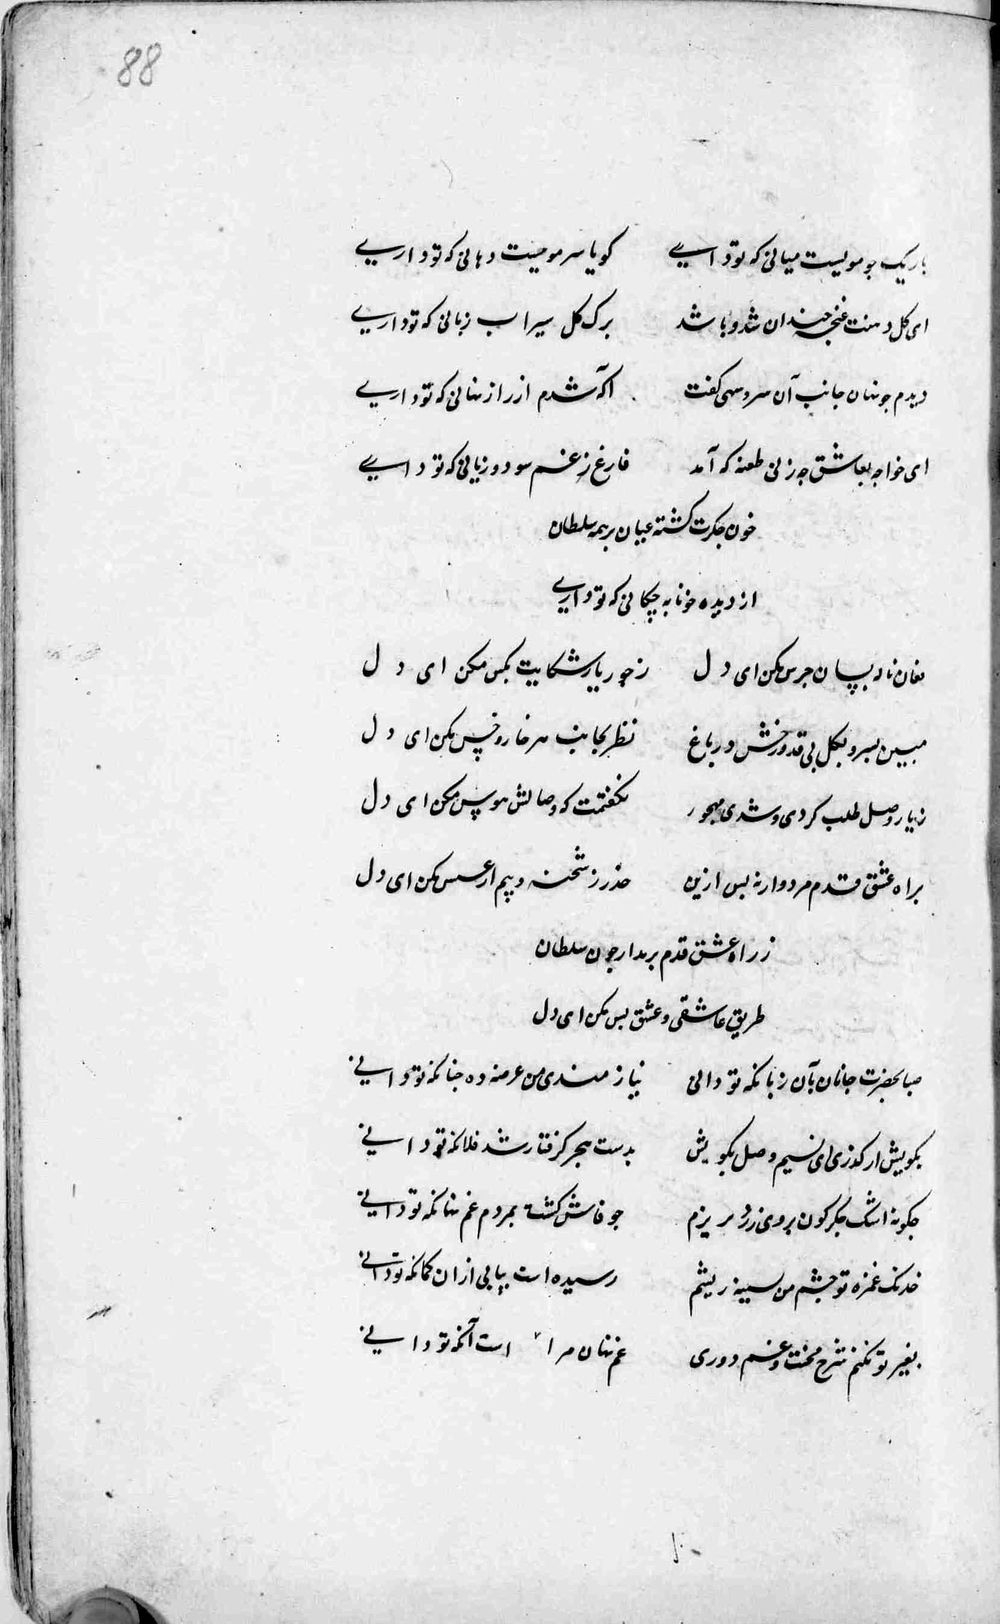 88
باریک چو مویست میانی که تو داری گویا سر مویست دهانی که تو داری
ای کل دهنت غنچه خندان شد و باشد برک کل سیراب زبانی که تو داری
دیدم چو نهان جانب آن سرو سهی کفت آکه شدم از راز نهانی که تو داری
ای خواجه بعاشق چه زنی طعنه که آمد فارغ ز غم سود و زیانی که تو داری
خون جکرت کشته عیان بر همه سلطان
از دیده خونابه چکانی که تو داری
فغان ناله بسان جرس مکن ای دل ز جور یار شکایت بکس مکن ای دل
مبین بسرو بکل بی قد و رخش در باغ نظر بجانب هر خار و خس مکن ای دل
ز یار وصل طلب کردی و شدی مهجور نکفتمت که وصالش هوس مکن ای دل
براه عشق قدم مردوار نه پس ازین حذر ز شحنه و بیم از عسس مکن ای دل
ز راه عشق قدم بر مدار چون سلطان
طریق عاشقی و عشق بس مکن ای دل
صبا بحضرت جانان بآن زبانکه تو دانی نیازمندی من عرضه ده چنانکه تو دانی
بکویش ار کذری ای نسیم وصل بکویش بدست هجر کرفتار شد فلانکه تو دانی
چکونه اشک جکرکون بروی زرد بریزم چو فاش کشت بمردم غم نهانکه تو دانی
خدنک غمزه تو چشم من سینه ریشم رسیده است پیاپی از ان کمانکه تو دانی
بغیر تو نکنم شرح محنت و غم دوری غم نهان مرا است آنکه تو دانی